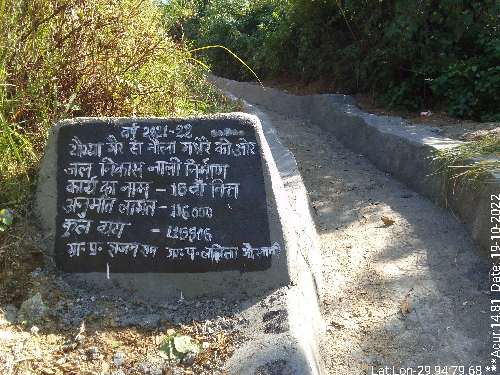 वर्ष 2021-22
सैण से नौला गधेरे की ओर
जल निकास नाली निर्माण
कार्य का नाम - 15वां वित्त
अनुमति लागत - 116000
कुल व्यय - 115
ग्रा० प्र० ग्रा० प०
Lat Lon-29.94,79.68
** Acur:14.81 Date: 19-10-2022